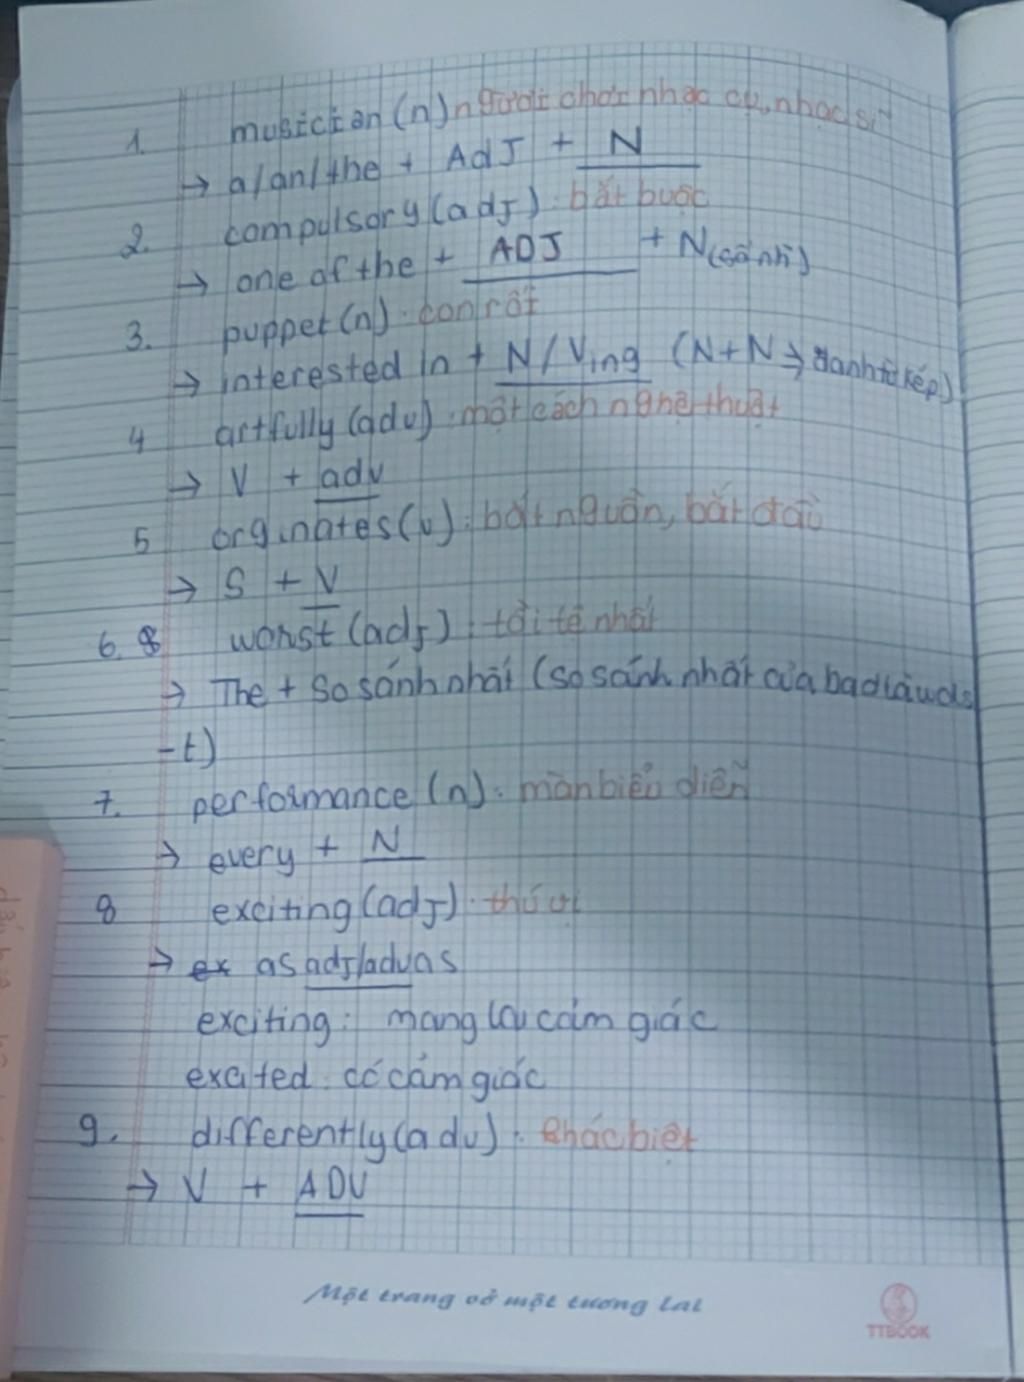 1. musician (n) người chơi nhạc cụ, nhạc sĩ
→ a/an/the + AdJ + N
2. compulsory (adj): bắt buộc
→ one of the + ADJ + N (số nhì)
3. puppet (n): con rối
→ interested in + N/Ving (N+N → danh từ kép)
4 artfully (adv): một cách nghệ thuật
→ V + adv
5 orginates (v): bắt nguồn, bắt đầu
→ S + V
6. 8 worst (adj): tồi tệ nhất
→ The + so sánh nhất (so sánh nhất của bad là wos
-t)
7. performance (n): màn biểu diễn
→ every + N
8 exciting (adj): thú vị
→ ex as adj/adv as
exciting: mang lại cảm giác
excited: có cảm giác
9. differently (adv): khác biệt
→ V + ADV
Một trang vở một tương lai
TTBOOK